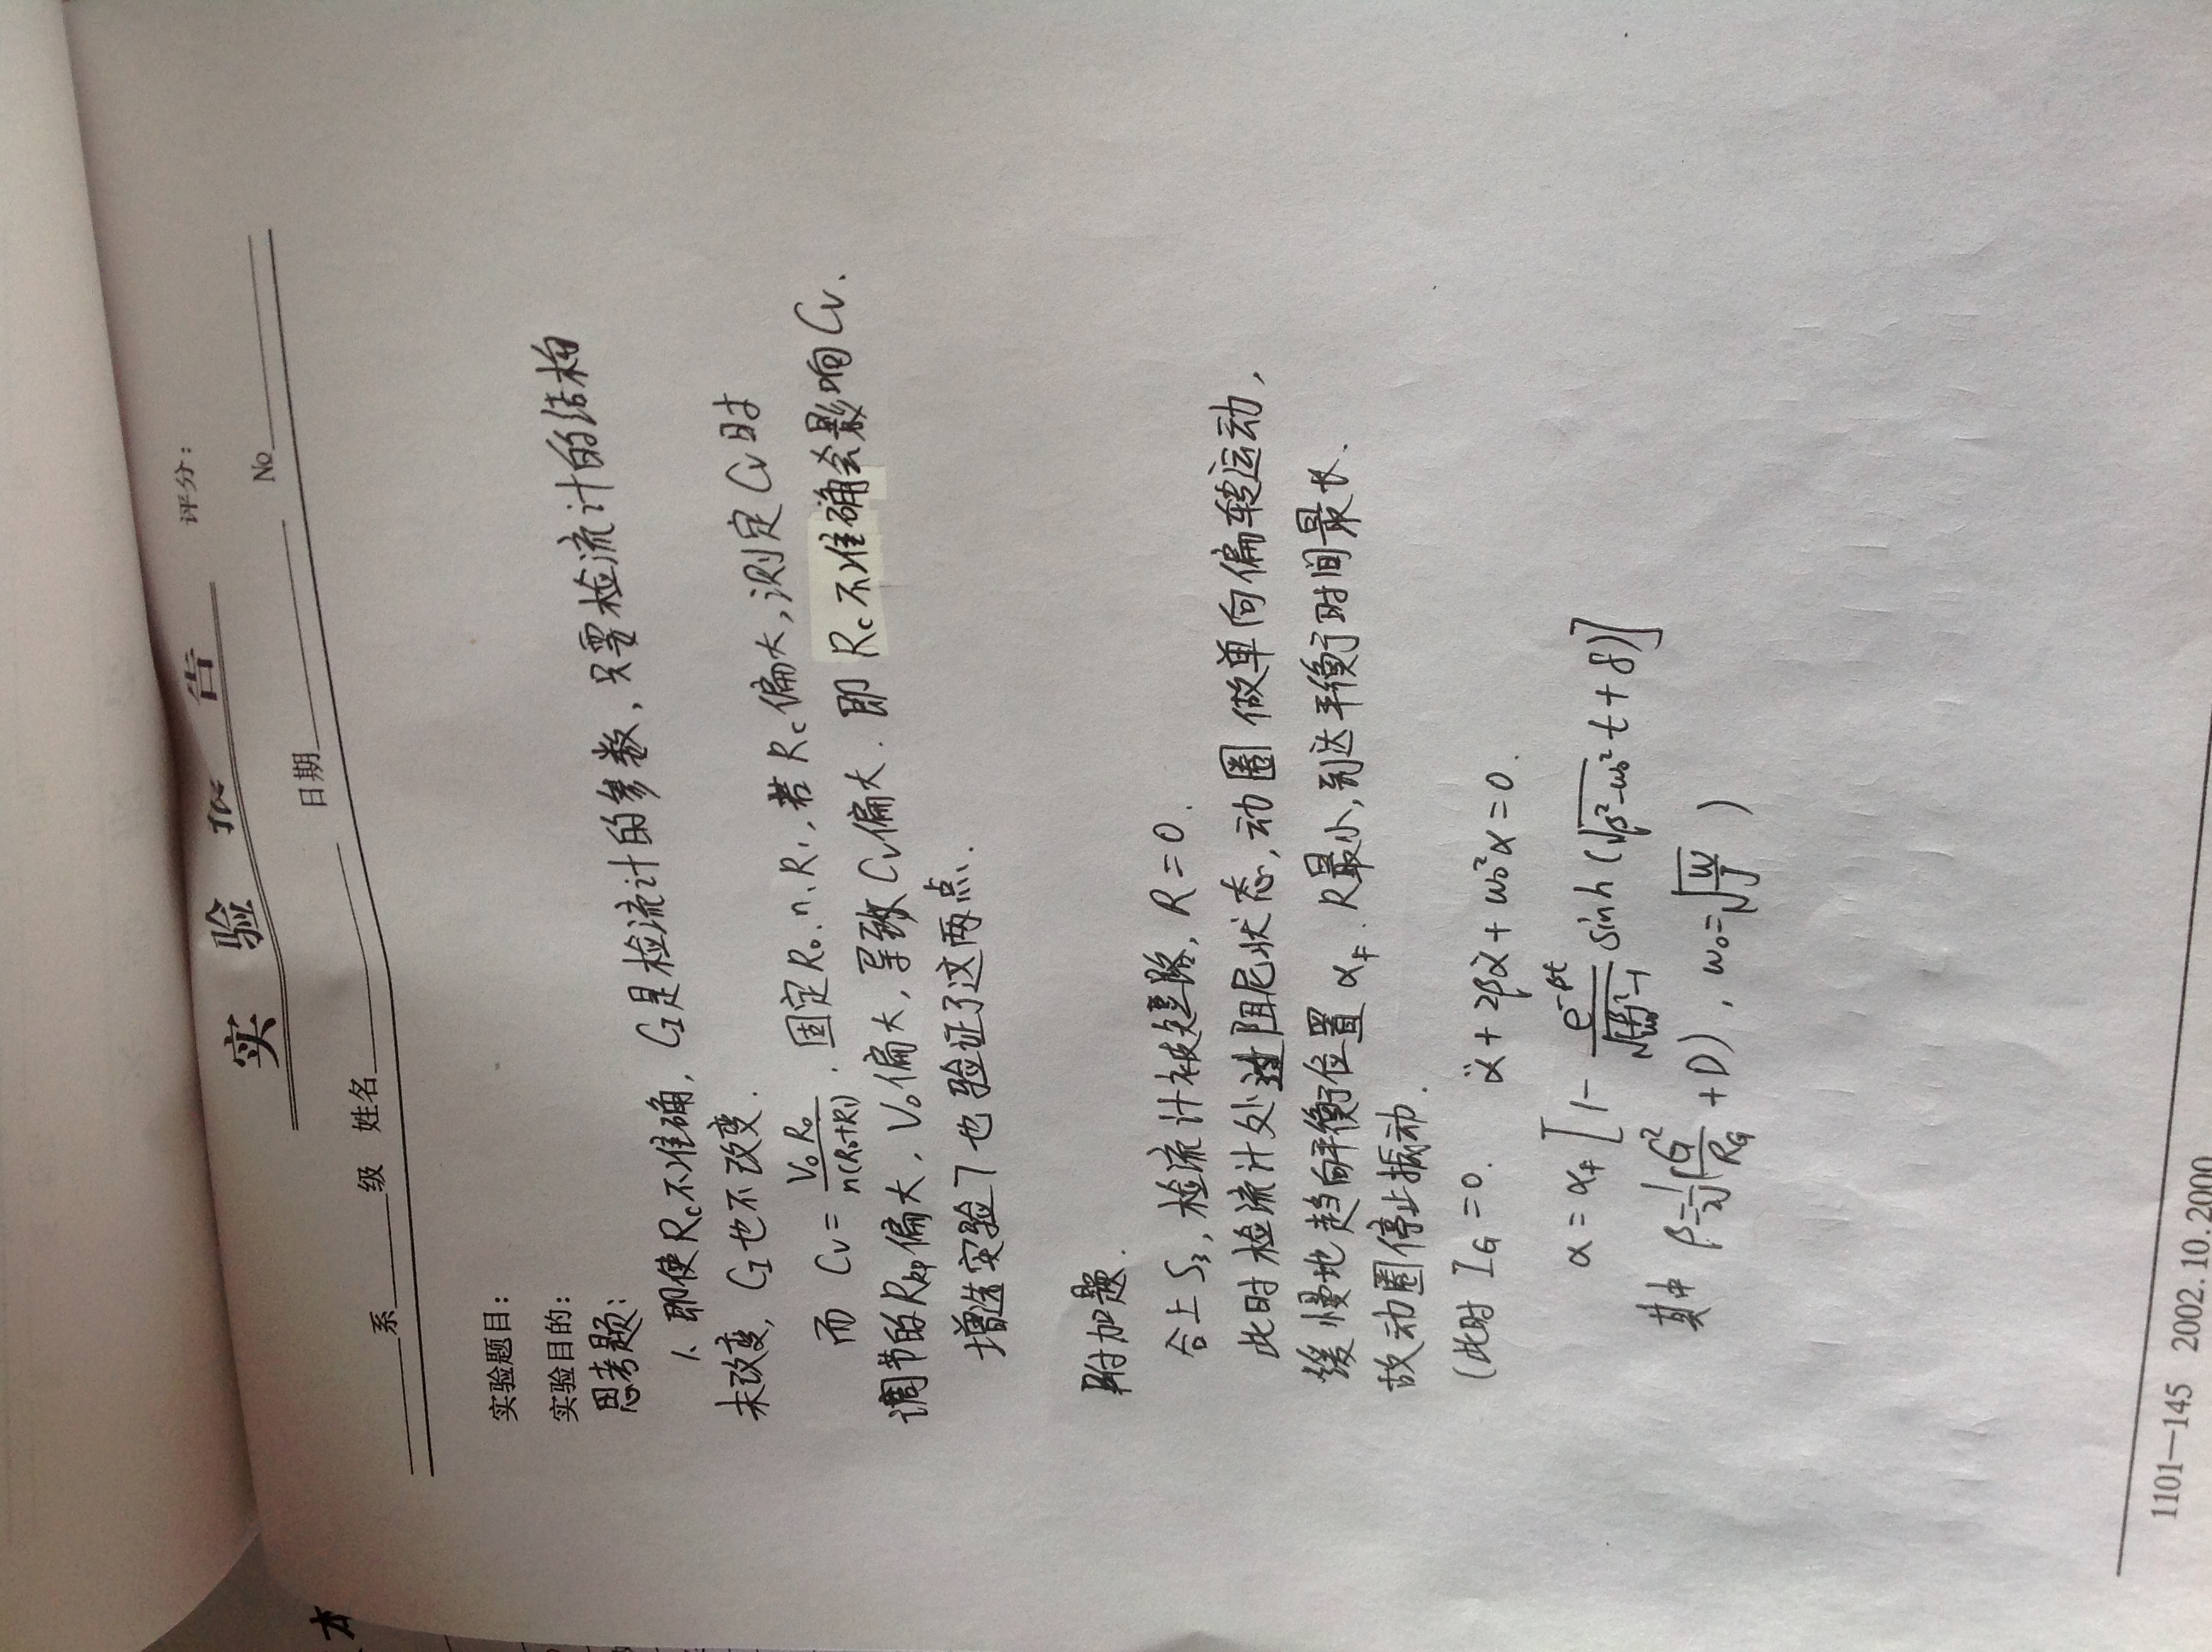 实验报告 评分:
No
日期
系 级 姓名
本
实验题目:
实验目的:
思考题:
1、即使Rc不准确, CI是检流计的参数, 只要检流计的结构
未改变, CI也不改变.
而 Cv = V₀R₀/n(R₀+R₁) . 固定R₀、n、R₁, 若Rc偏大, 测定Cv时
调节的Rkp偏大, V₀偏大, 导致Cv偏大. 即Rc不准确会影响Cv.
增选实验7也验证了这两点.
附加题.
合上S₃, 检流计被短路, R=0.
此时检流计处过阻尼状态, 动圈做单向偏转运动,
缓慢地趋向平衡位置 αF. R最小, 到达平衡时间最长.
故动圈停止振动.
(此时 IG=0. α̈+2βα̇+ω₀²α=0.
α = αF [1 - e^{-βt}/√((β/ω₀)²-1) sinh(√(β²-ω₀²) t + δ)]
其中 β=1/2J(G²/RG + D), ω₀=√(W/J) )
1101—145 2002.10.2000